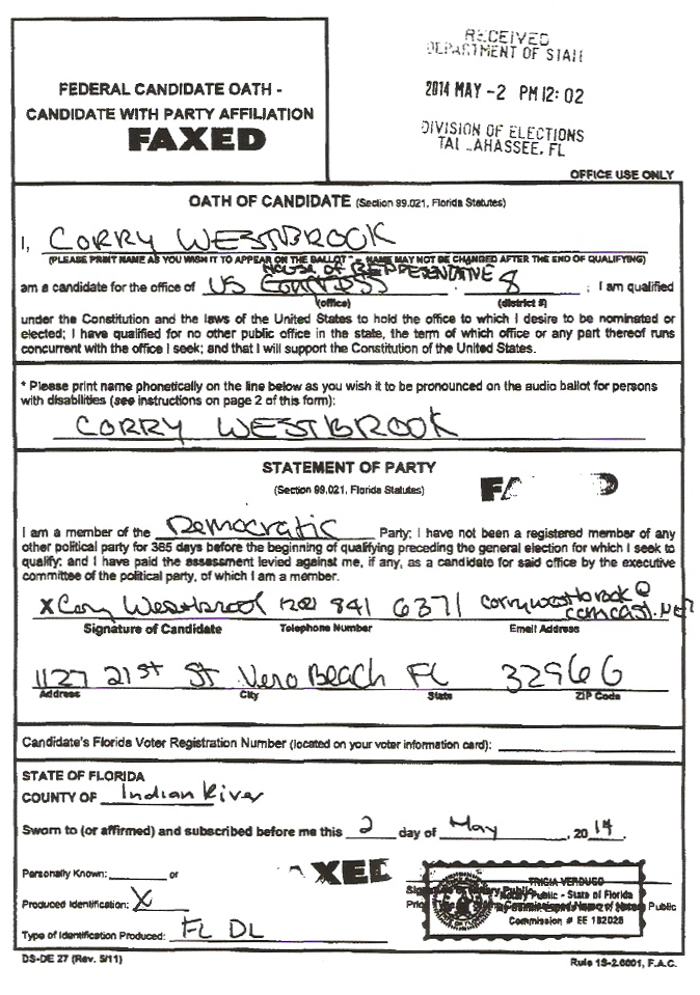 FEDERAL CANDIDATE OATH -
CANDIDATE WITH PARTY AFFILIATION
FAXED
RECEIVED
DEPARTMENT OF STATE
2014 MAY -2 PM 12: 02
DIVISION OF ELECTIONS
TALLAHASSEE, FL
OFFICE USE ONLY
OATH OF CANDIDATE (Section 99.021, Florida Statutes)
I, CORRY WESTBROOK
(PLEASE PRINT NAME AS YOU WISH IT TO APPEAR ON THE BALLOT * - NAME MAY NOT BE CHANGED AFTER THE END OF QUALIFYING)
HOUSE OF REPRESENTATIVE
am a candidate for the office of US CONGRESS 8 ; I am qualified
(office) (district #)
under the Constitution and the laws of the United States to hold the office to which I desire to be nominated or
elected; I have qualified for no other public office in the state, the term of which office or any part thereof runs
concurrent with the office I seek; and that I will support the Constitution of the United States.
* Please print name phonetically on the line below as you wish it to be pronounced on the audio ballot for persons
with disabilities (see instructions on page 2 of this form):
CORRY WESTBROOK
STATEMENT OF PARTY
(Section 99.021, Florida Statutes)
I am a member of the Democratic Party; I have not been a registered member of any
other political party for 365 days before the beginning of qualifying preceding the general election for which I seek to
qualify; and I have paid the assessment levied against me, if any, as a candidate for said office by the executive
committee of the political party, of which I am a member.
X Corry Westbrook 202 841 6371 corrywestbrook@
comcast.net
Signature of Candidate Telephone Number Email Address
1127 21st St Vero Beach FL 32966
Address City State ZIP Code
Candidate's Florida Voter Registration Number (located on your voter information card):
STATE OF FLORIDA
COUNTY OF Indian River
Sworn to (or affirmed) and subscribed before me this 2 day of May, 2014.
Personally Known: or
AXED
Produced Identification: X
Type of Identification Produced: FL DL
TRICIA VERDUGO
Notary Public - State of Florida
Commission # EE 182028
Public
DS-DE 27 (Rev. 5/11)
Rule 1S-2.0001, F.A.C.